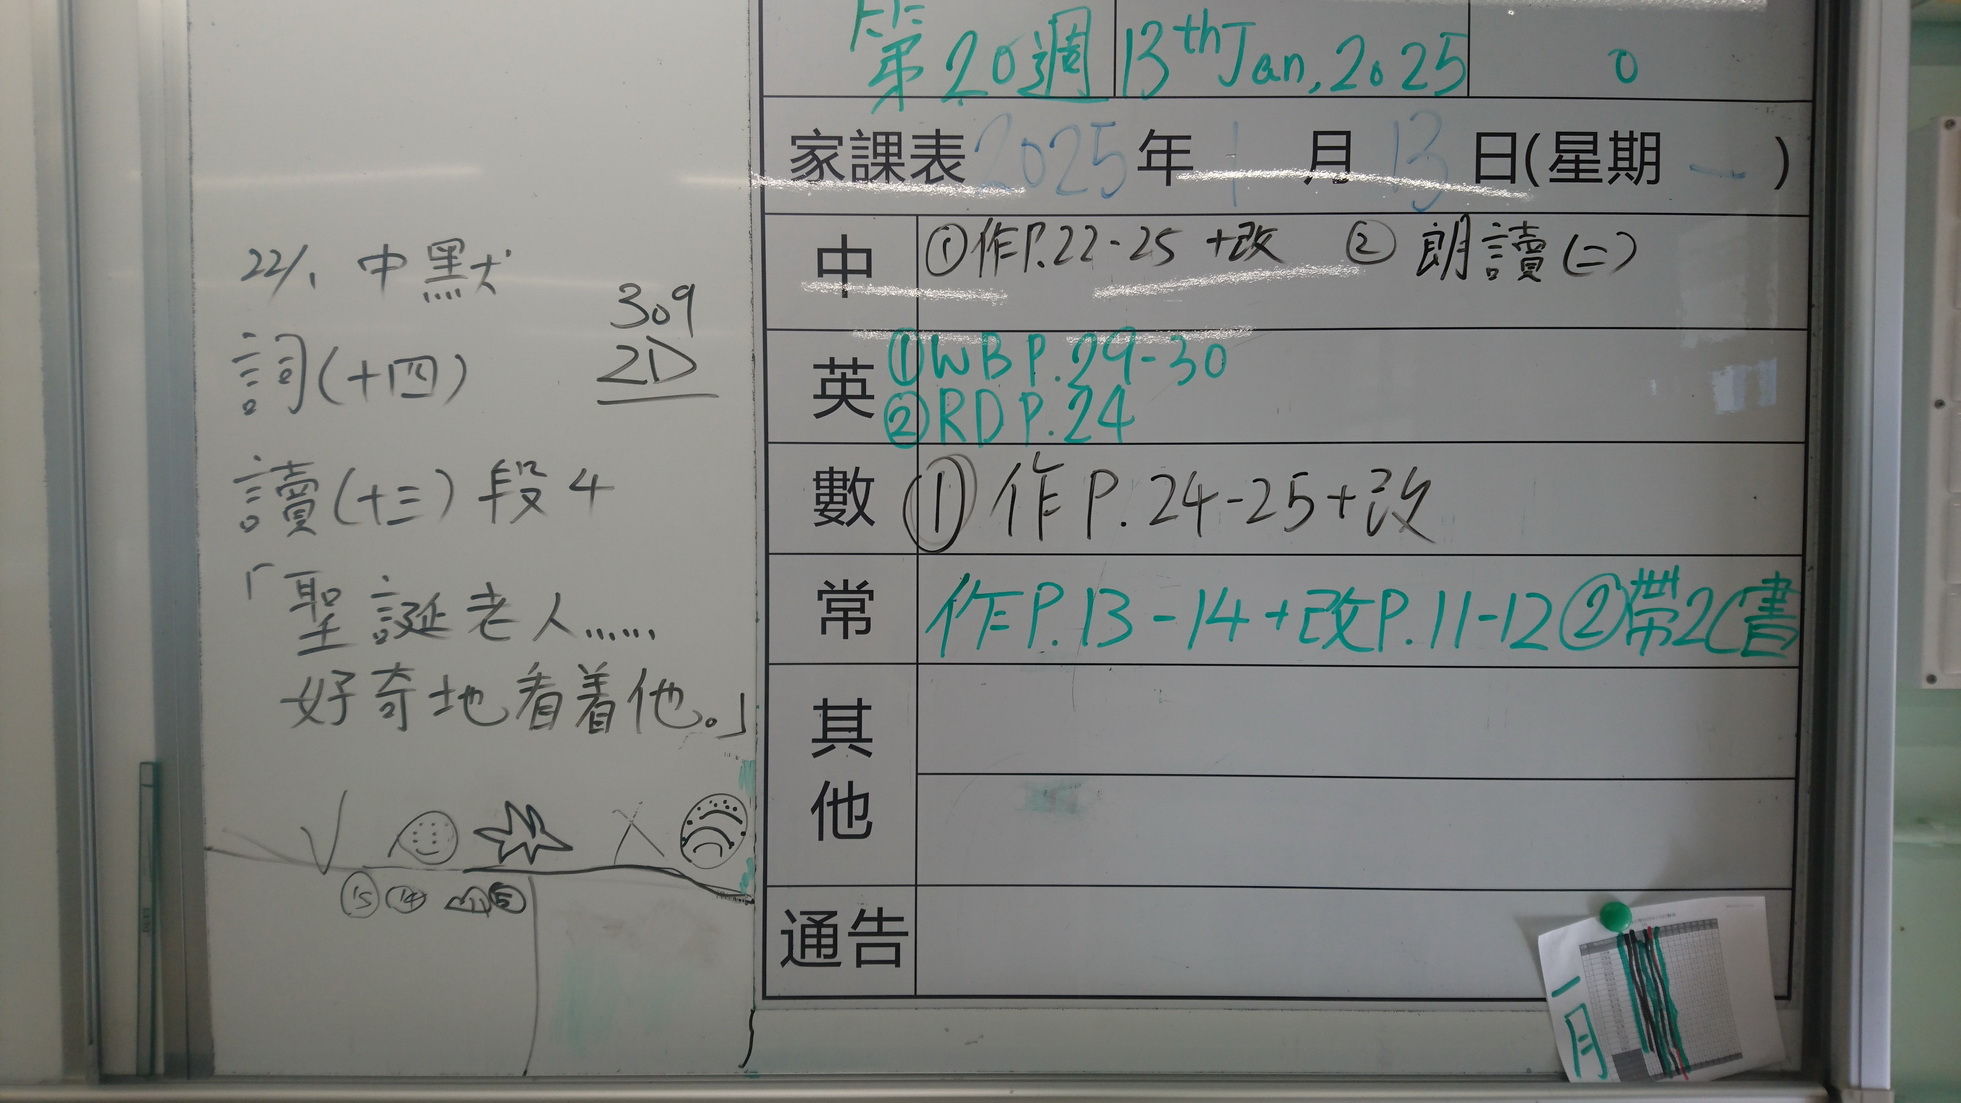 第20週 13th Jan, 2025 0
家課表 2025年 1月 13日(星期一)
中 ①作P.22-25 +改 ②朗讀(二)
英 ①WB P.29-30
②RD P.24
數 ①作P.24-25+改
常 作P.13-14+改P.11-12②帶2C書
其他
通告
22/1 中默
309
2D
詞(十四)
讀(十三)段4
「聖誕老人……
好奇地看着他。」
15 14
一月